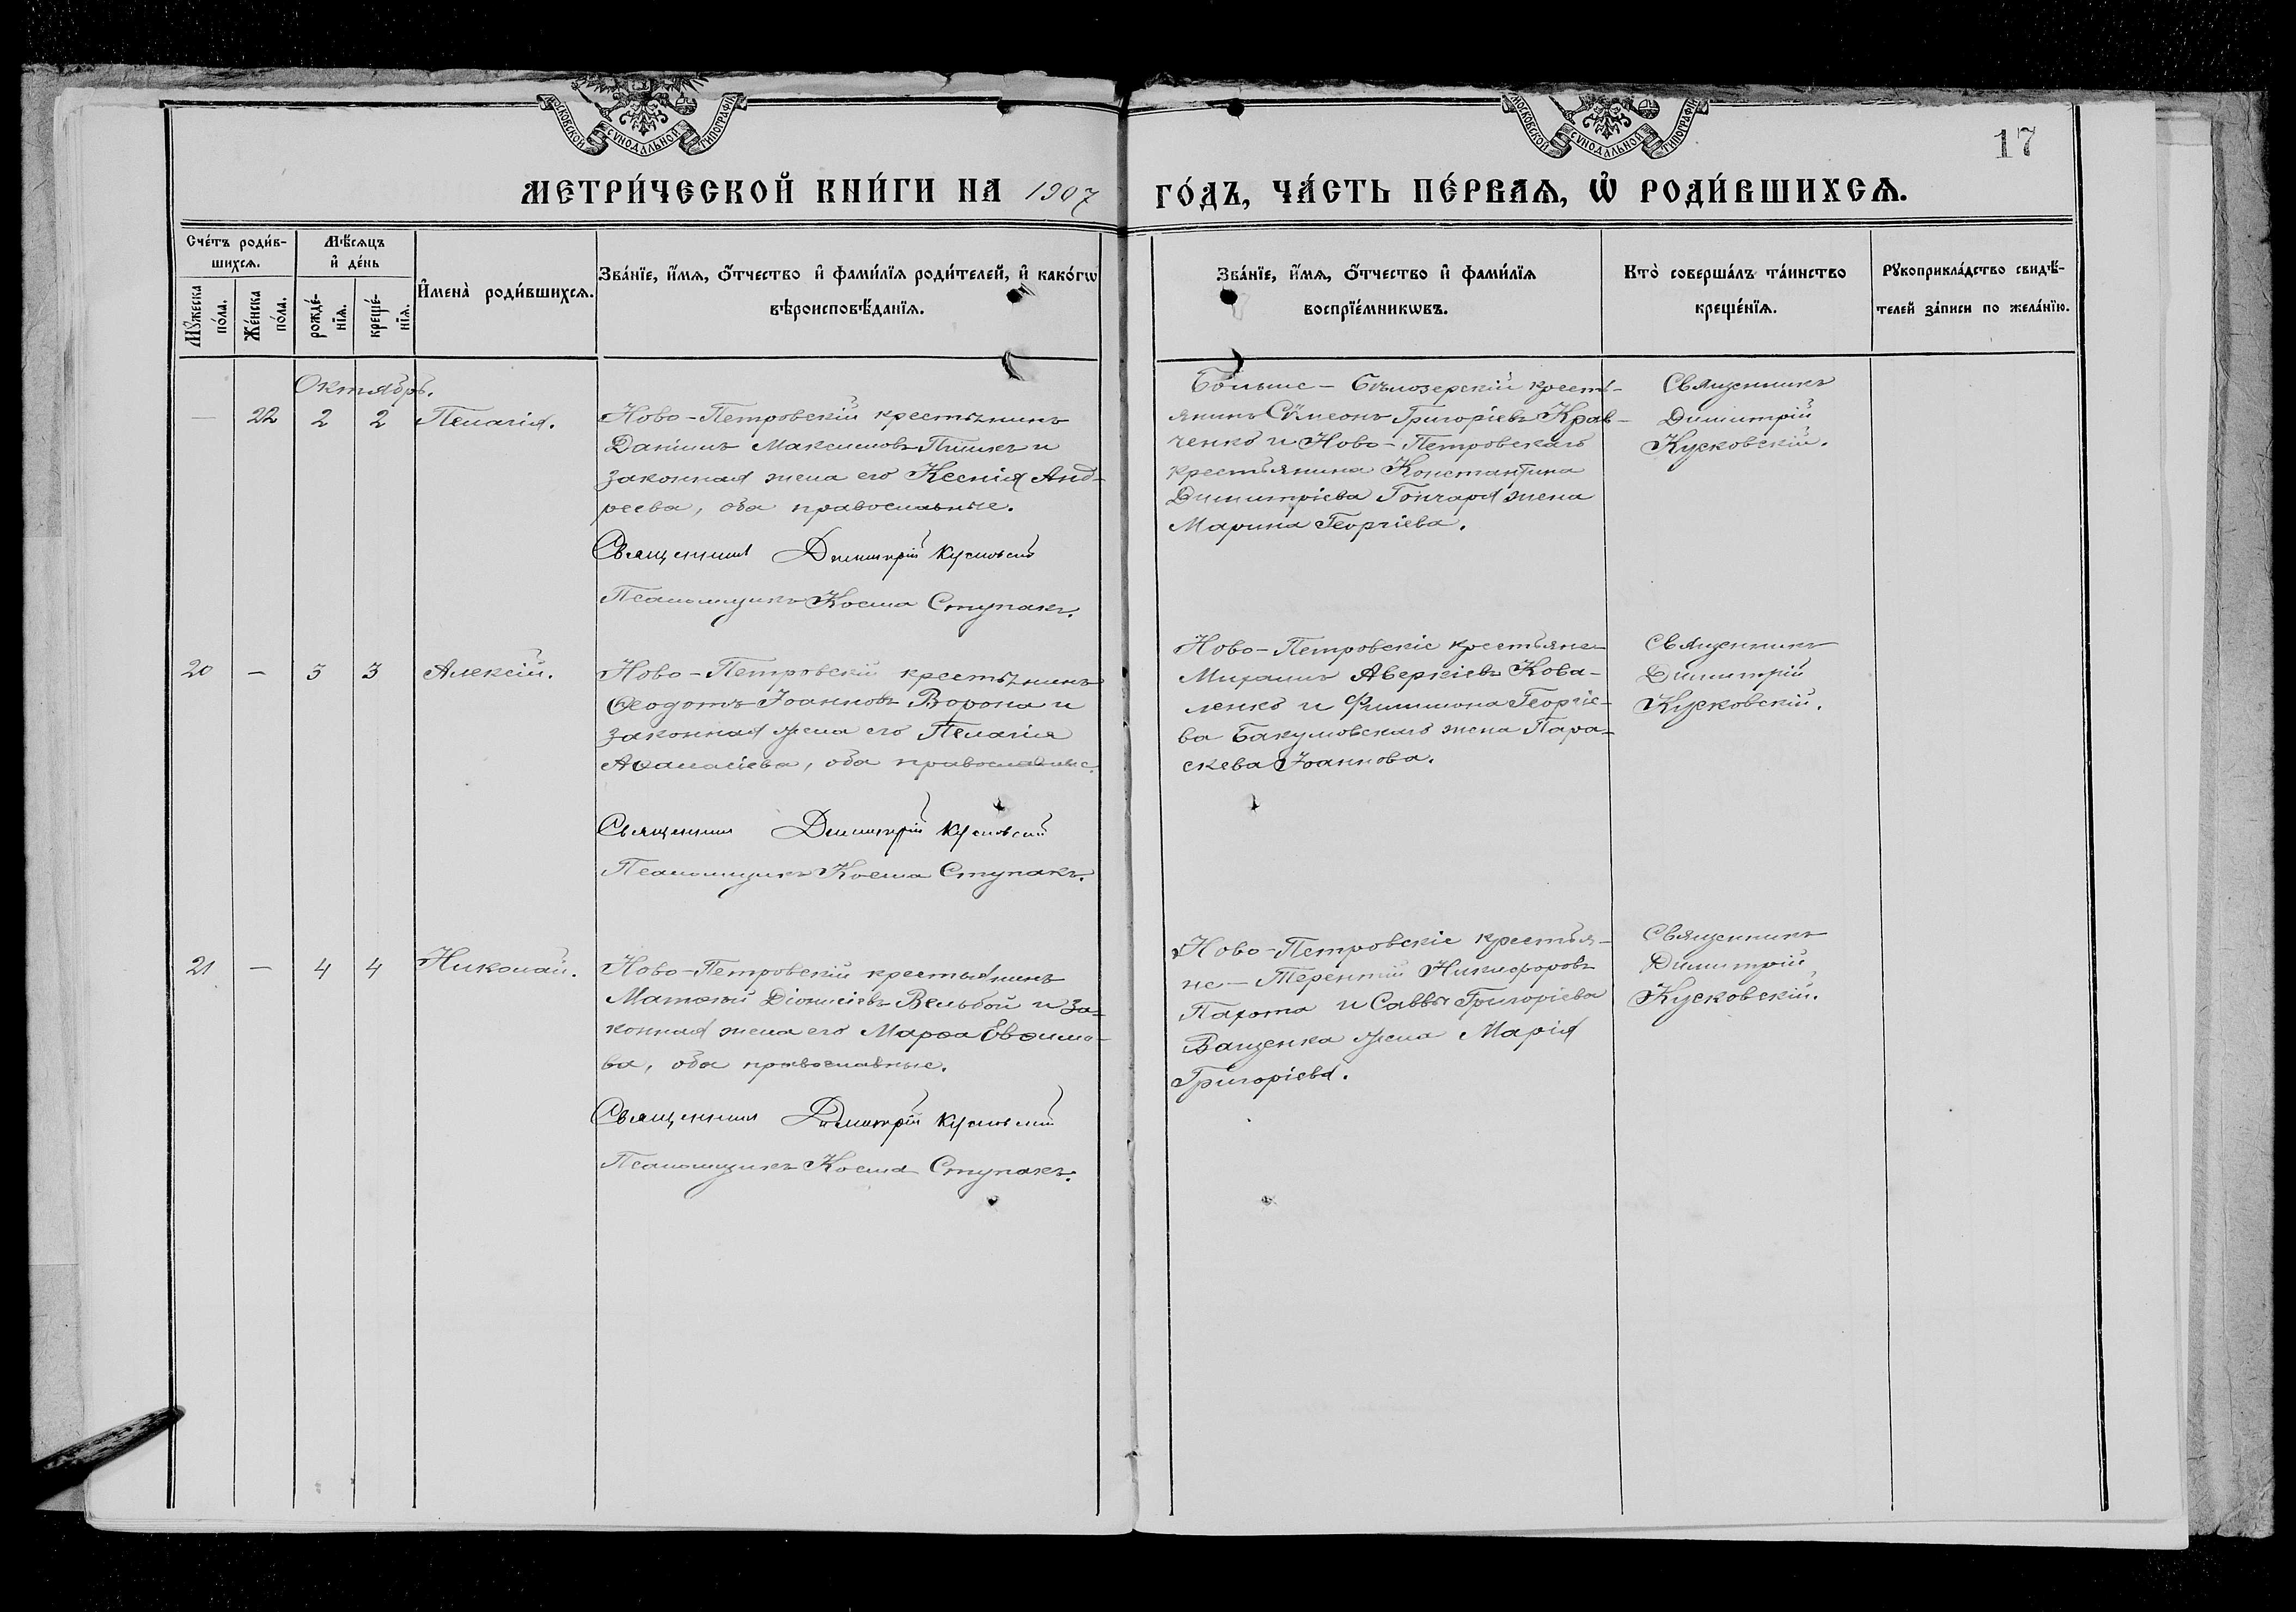 МОСКОВСКОЙ СУНОДАЛЬНОЙ ТИПОГРАФІИ
МОСКОВСКОЙ СУНОДАЛЬНОЙ ТИПОГРАФІИ
17
МЕТРИ́ЧЕСКОЙ КНИ́ГИ НА 1907 ГО́ДЪ, ЧА́СТЬ ПЕ́РВАѦ, Ѡ҆ РОДИ́ВШИХСѦ.
Сче́тъ роди́в-
шихсѧ.
Мѣ́сѧцъ
и҆ де́нь
Мꙋ́жеска
по́ла.
Же́нска
по́ла.
рожде́-
нїѧ.
креще́-
нїѧ.
И҆мена̀ роди́вшихсѧ.
Зва́нїе, и҆́мѧ, ѻ҆́тчество и҆ фами́лїѧ роди́телей, и҆ како́гѡ
вѣроисповѣ́данїѧ.
Зва́нїе, и҆́мѧ, ѻ҆́тчество и҆ фами́лїѧ
воспрїе́мникѡвъ.
Кто̀ соверша́лъ та́инство
креще́нїѧ.
Рꙋкоприкла́дство свидѣ́-
телей за́писи по жела́нїю.
Октябрь.
— 22 2 2 Пелагія.
Ново-Петровскій крестьянинъ
Даніилъ Максимовъ и
законная жена его Ксенія Анд-
реева, оба православные.
Священникъ Димитрій Кусковскій
Псаломщикъ Косма Ступакъ.
Больше-Бѣлозерскій кресть-
янинъ Сѵмеонъ Григоріевъ Крав-
ченко и Ново-Петровскаго
крестьянина Константина
Димитріева Гончара жена
Марина Георгіева.
Священникъ
Димитрій
Кусковскій.
20 — 3 3 Алексій.
Ново-Петровскій крестьянинъ
Ѳеодотъ Іоанновъ Ворона и
законная жена его Пелагія
Аѳанасіева, оба православные.
Священникъ Димитрій Кусковскій
Псаломщикъ Косма Ступакъ.
Ново-Петровскіе крестьяне
Михаилъ Аверкіевъ Кова-
ленко и Филимона Георгіе-
ва Бакумовскаго жена Пара-
скева Іоаннова.
Священникъ
Димитрій
Кусковскій.
21 — 4 4 Николай.
Ново-Петровскій крестьянинъ
Матѳей Діонисіевъ Вельбой и за-
конная жена его Марѳа Евѳимо-
ва, оба православные.
Священникъ Димитрій Кусковскій
Псаломщикъ Косма Ступакъ.
Ново-Петровскіе крестья-
не — Терентій Никифоровъ
Пахота и Саввы Григоріева
Ващенка жена Марія
Григоріева.
Священникъ
Димитрій
Кусковскій.